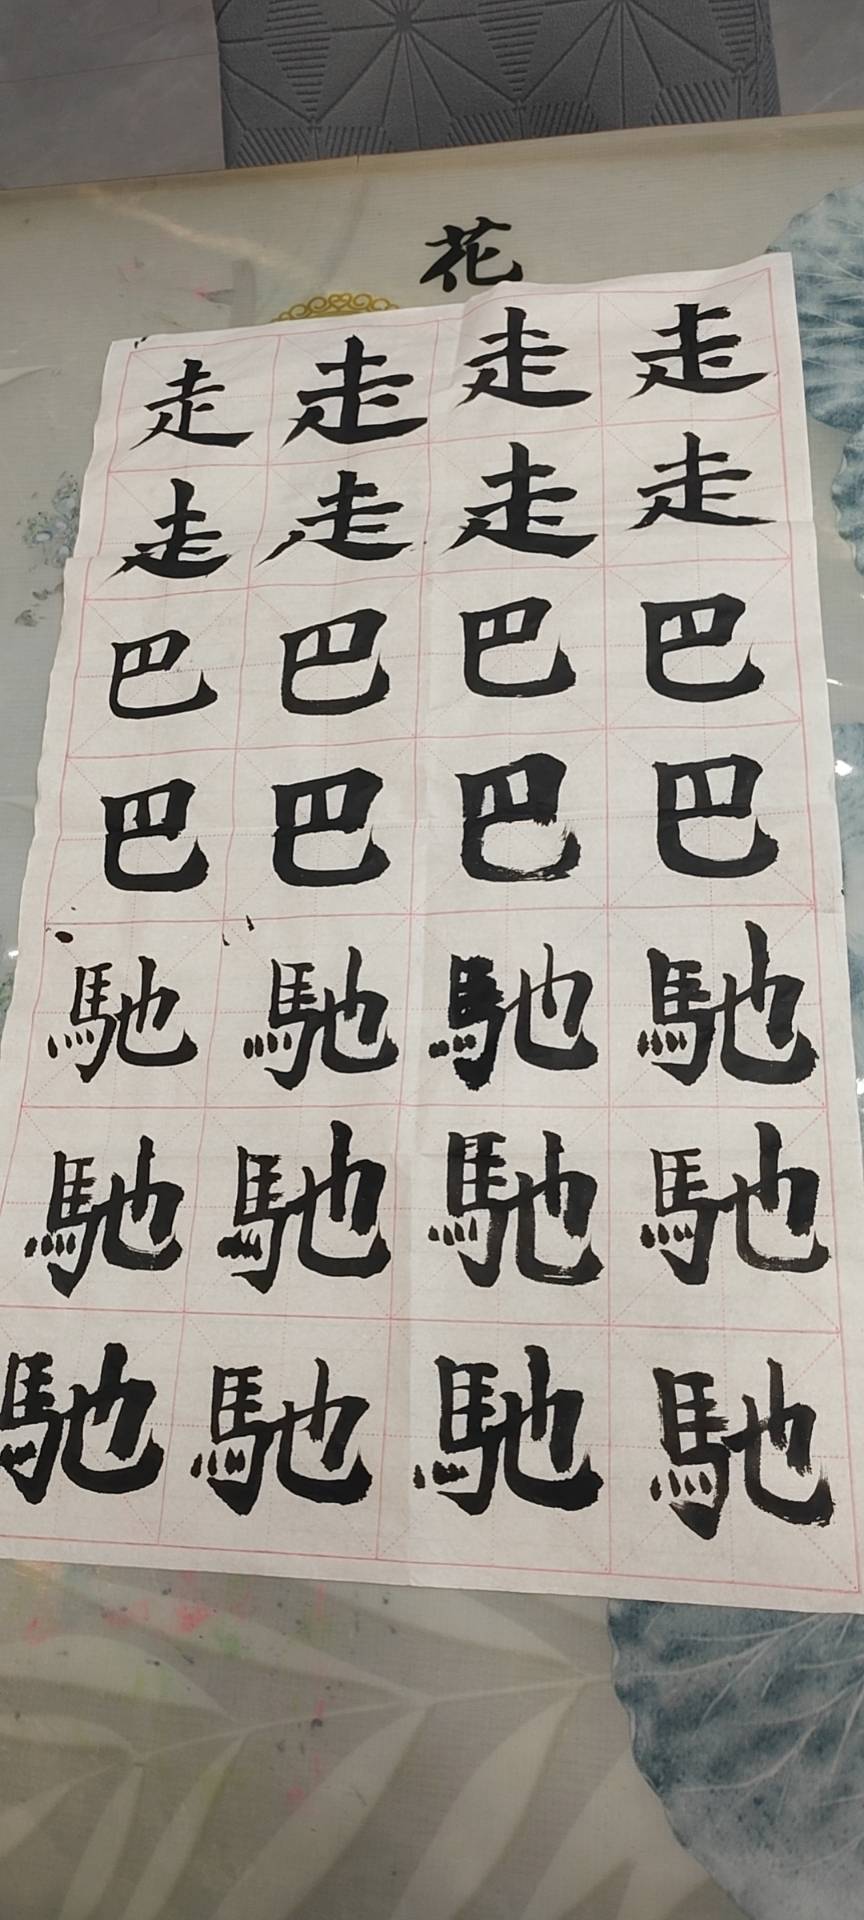 花
走走走走
走走走走
巴巴巴巴
巴巴巴巴
馳馳馳馳
馳馳馳馳
馳馳馳馳